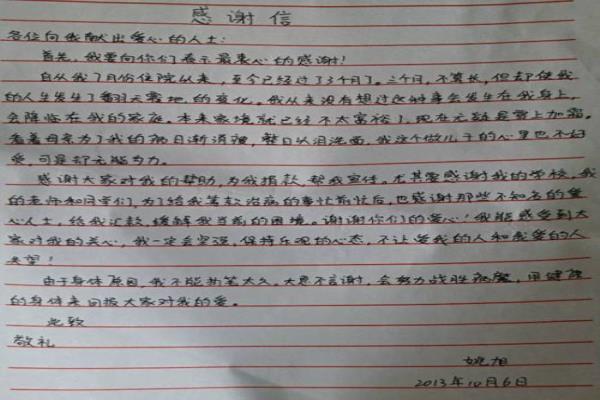 感谢信
各位向我献出爱心的人士:
首先,我要向你们表示最衷心的感谢!
自从我7月份住院以来,至今已经过了3个月了,三个月,不算长,但却使我
的人生发生了翻天覆地的变化。我从来没有想过这种事会发生在我身上,
会降临在我的家庭。本来家境就已经不太富裕了,现在无疑是雪上加霜。
看着母亲为了我的病日渐消瘦,整日以泪洗面,我这个做儿子的心里也不好
受,可是却无能为力。
感谢大家对我的帮助,为我捐款,帮我宣传。尤其要感谢我的学校,我
的老师和同学们,为了给我筹款治病的事忙前忙后,也感谢那些不知名的爱
心人士,给我汇款,缓解我当前的困境。谢谢你们的爱心!我能感受到大
家对我的关心,我一定会坚强,保持乐观的心态,不让爱我的人和我爱的人
失望!
由于身体原因,我不能执笔太久,大恩不言谢,会努力战胜病魔,用健康
的身体来回报大家对我的爱。
此致
敬礼
姚旭
2013年10月6日